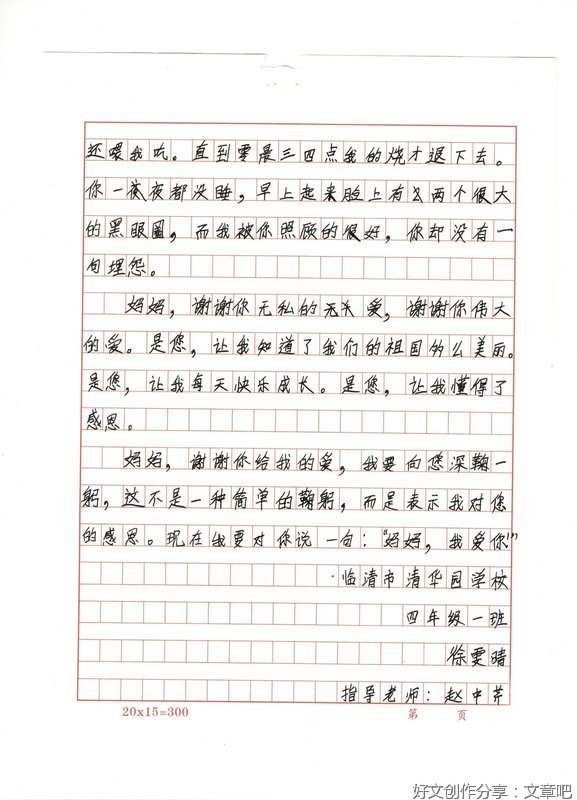 还喂我吃。直到零晨三四点我的烧才退下去。
你一夜都没睡，早上起来脸上有两个很大
的黑眼圈，而我被你照顾的很好，你却没有一
句埋怨。
妈妈，谢谢你无私的爱，谢谢你伟大
的爱。是您，让我知道了我们的祖国多么美丽。
是您，让我每天快乐成长。是您，让我懂得了
感恩。
妈妈，谢谢你给我的爱，我要向您深鞠一
躬，这不是一种简单的鞠躬，而是表示我对您
的感恩。现在我要对你说一句：“妈妈，我爱你！”
临清市清华园学校
四年级一班
徐雯晴
指导老师：赵中芹
20x15=300
第 页
好文创作分享：文章吧